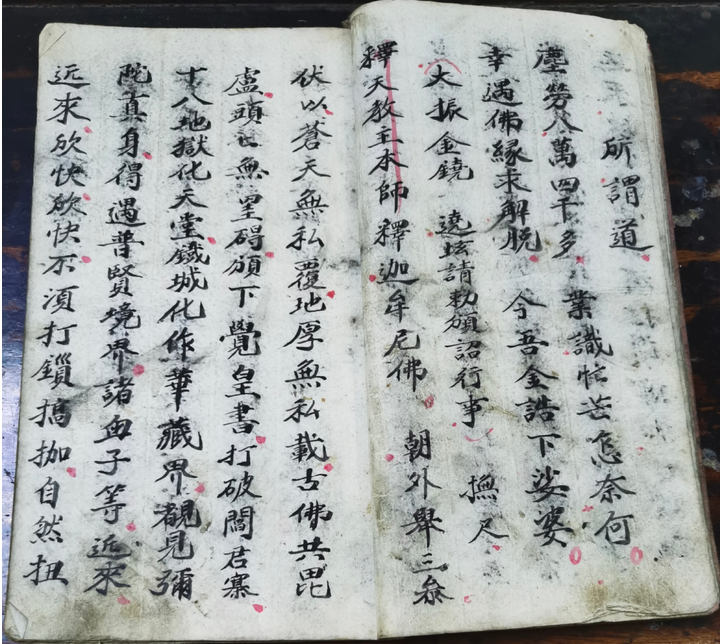 所謂道
塵勞八萬四千多 業識忙芒怎奈何
幸遇佛緣求解脫 今吾金誥下娑婆
大振金鐃 遶坛請勅頒詔行事 撫尺
釋天教主本師釋迦牟尼佛 朝外舉三叅
伏以蒼天無私覆地厚無私載古佛共毘
盧頭上無罣碍頒下覺皇書打破閻君寨
十八地獄化天堂鐵城化作華藏界覩見彌
陀真身得遇普賢境界諸血子等近來
近來欣快欣快不湏打鎖搞拁自然扭